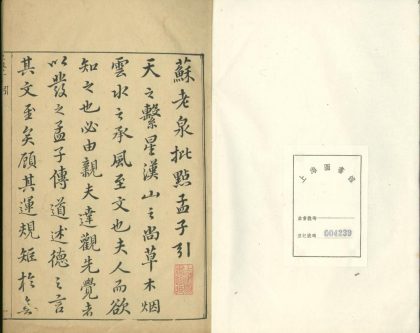 蘇老泉批點孟子引
天之繫星漢山之尚草木烟
雲水之承風至文也夫人而欲
知之也必由親夫達觀先覺者
以發之孟子傳道述德之言
其文至矣顧其運規矩於
引
上海圖書館
登記號碼 604239